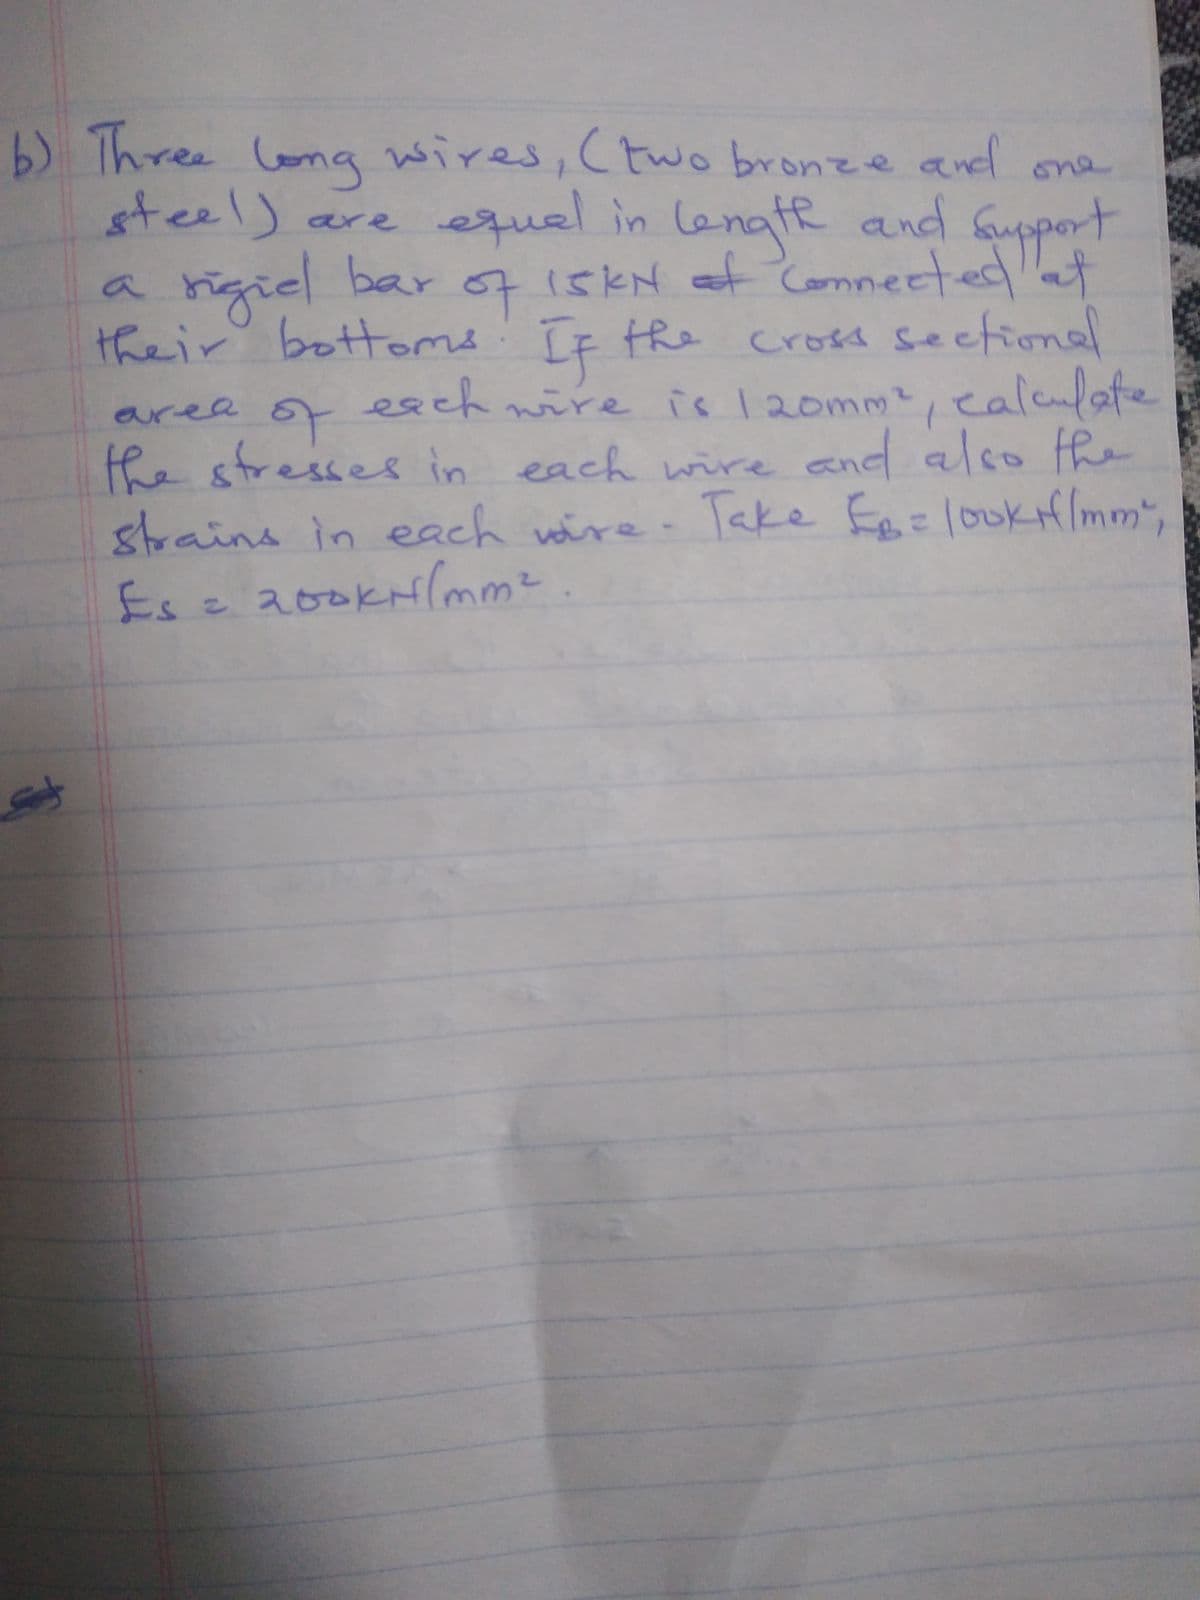 b) Three long wires, (two bronze and one
steel) are equal in length and support
a rigid bar of 15kN connected at
their bottoms. If the cross sectional
area of each wire is 120mm², calculate
the stresses in each wire and also the
strains in each wire. Take EB = 100kN/mm²,
Es = 200kN/mm².